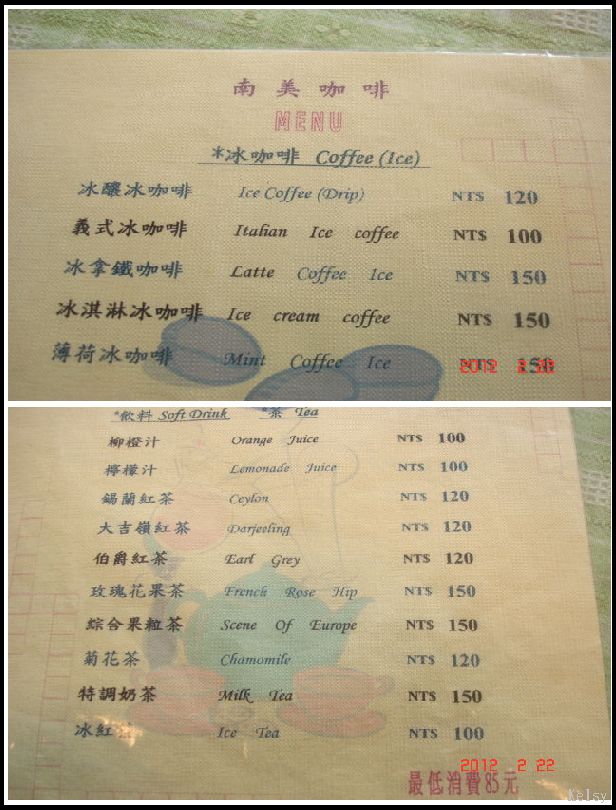 南美咖啡
MENU
*冰咖啡 Coffee (Ice)
冰釀冰咖啡 Ice Coffee (Drip) NT$ 120
義式冰咖啡 Italian Ice coffee NT$ 100
冰拿鐵咖啡 Latte Coffee Ice NT$ 150
冰淇淋冰咖啡 Ice cream coffee NT$ 150
薄荷冰咖啡 Mint Coffee Ice NT$ 150
2012 2 22
*飲料 Soft Drink *茶 Tea
柳橙汁 Orange Juice NT$ 100
檸檬汁 Lemonade Juice NT$ 100
錫蘭紅茶 Ceylon NT$ 120
大吉嶺紅茶 Darjeeling NT$ 120
伯爵紅茶 Earl Grey NT$ 120
玫瑰花果茶 French Rose Hip NT$ 150
綜合果粒茶 Scene Of Europe NT$ 150
菊花茶 Chamomile NT$ 120
特調奶茶 Milk Tea NT$ 150
冰紅 Ice Tea NT$ 100
2012 2 22
最低消費85元
Kelsy